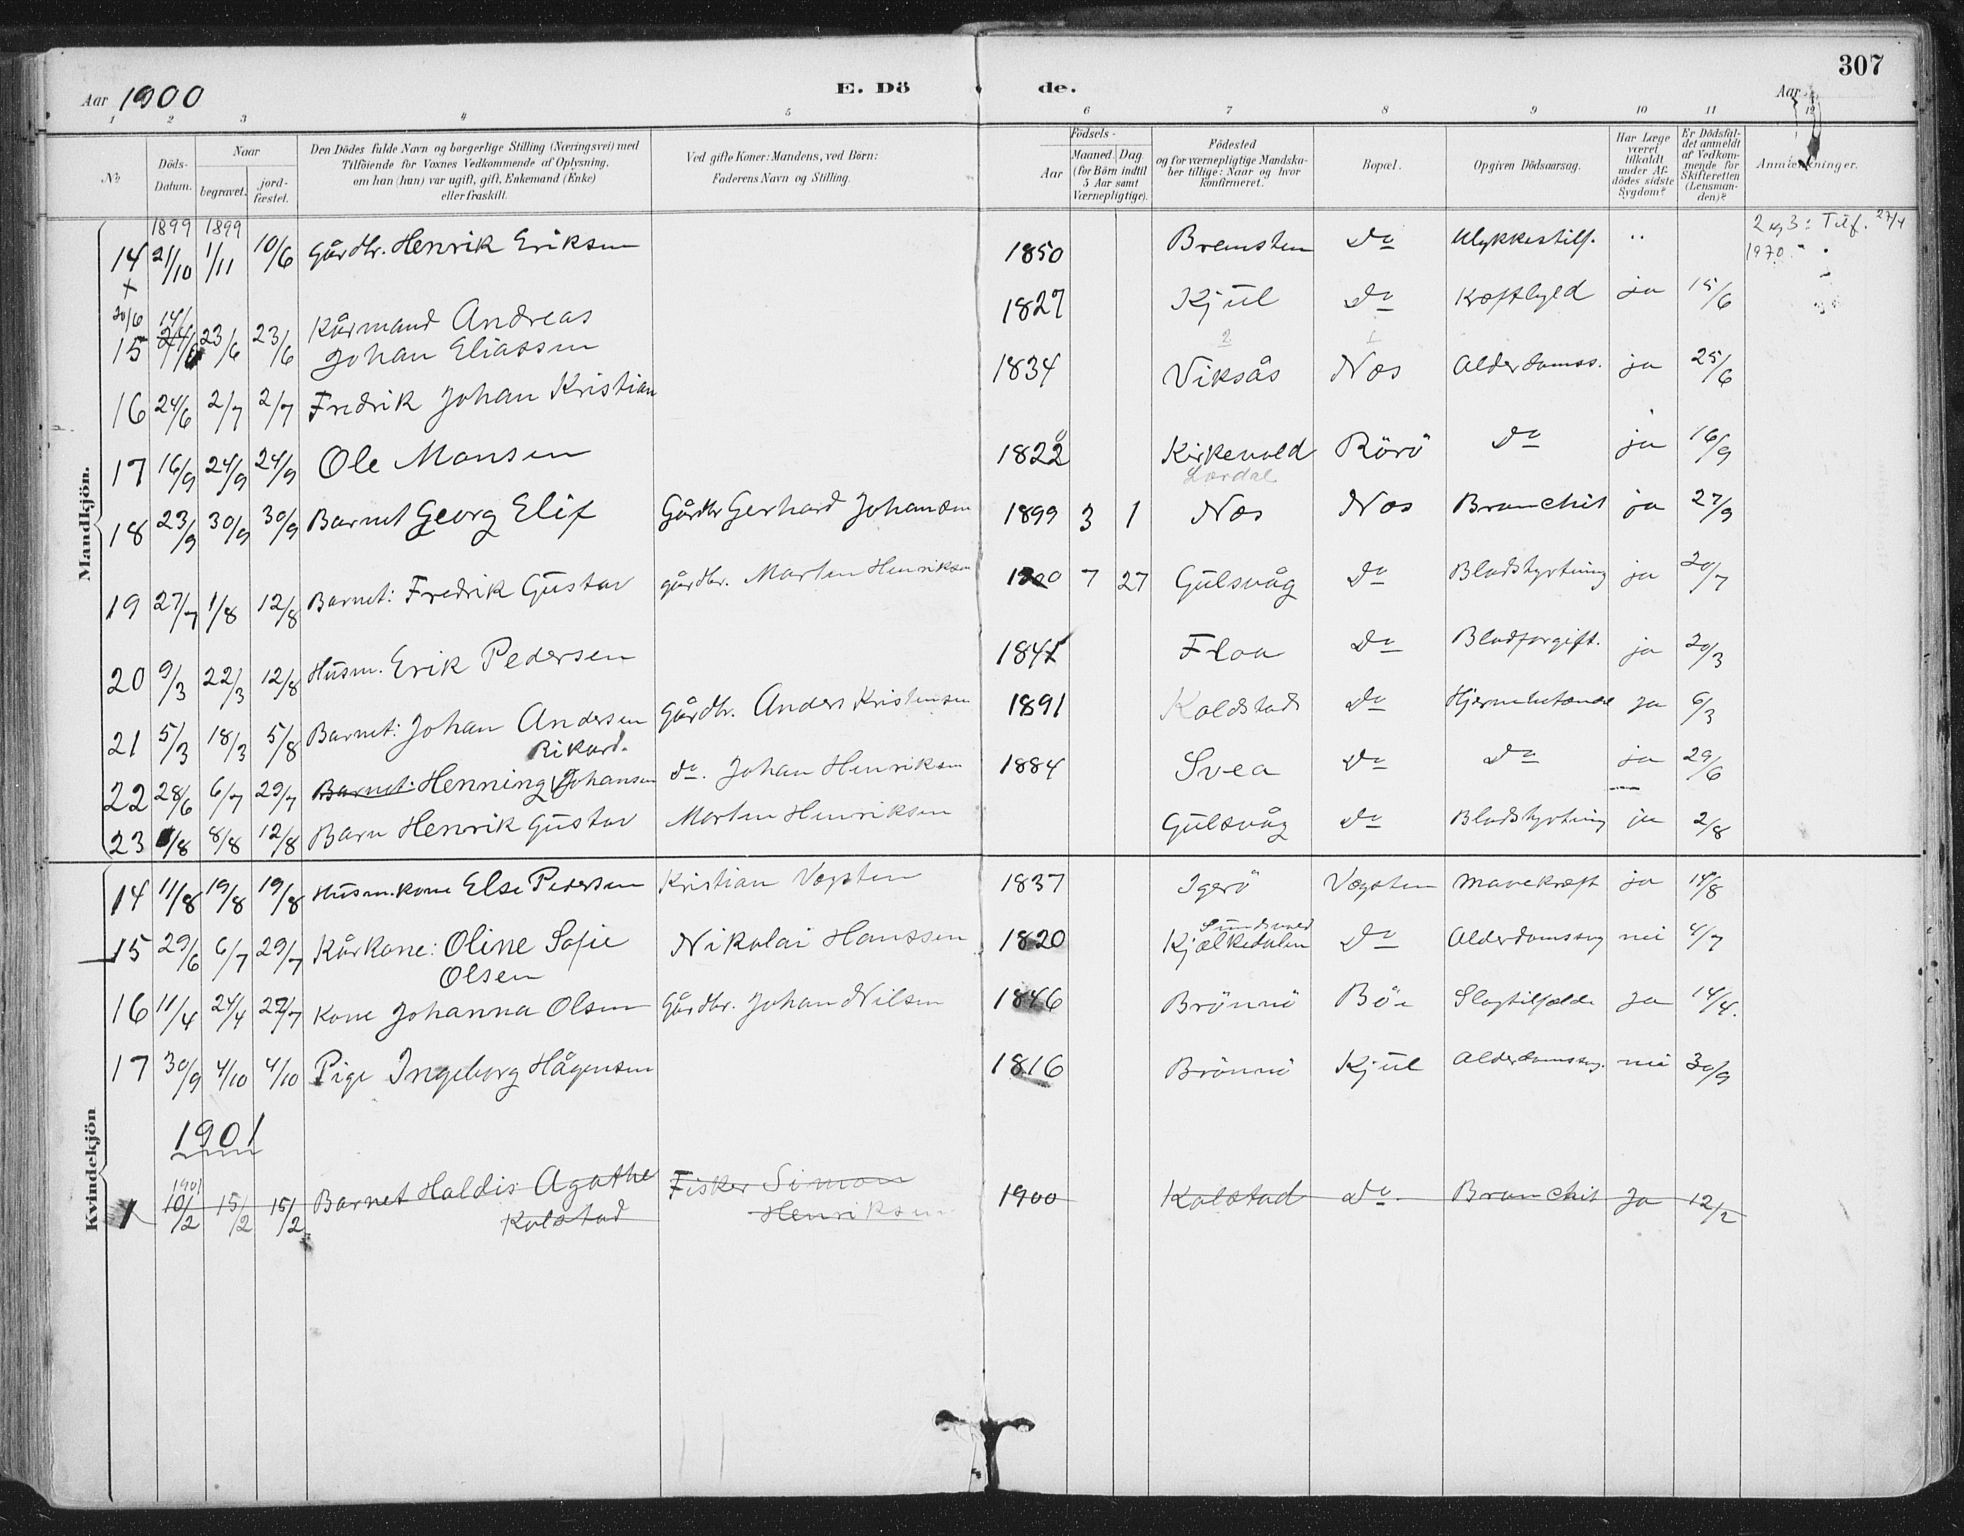 307
Aar 1900 E. Dö de. Aar
1 2 3 4 5 6 7 8 9 10 11 12
No. Döds-Datum. Naar begravet. jordfæstet. Den Dödes fulde Navn og borgerlige Stilling (Næringsvei) med Tilföiende for Voxnes Vedkommende af Oplysning, om han (hun) var ugift, gift, Enkemand (Enke) eller fraskilt. Ved gifte Koner: Mandens, ved Börn: Faderens Navn og Stilling. Födsels- Aar Maaned. Dag. (for Börn indtil 5 Aar samt Værnepligtige). Födested og for værnepligtige Mandskaber tillige: Naar og hvor konfirmeret. Bopæl. Opgiven Dödsaarsag. Har Læge været tilkaldt under Afdödes sidste Sygdom? Er Dödsfaldet anmeldt af Vedkommende for Skifteretten (Lensmanden)? Anmærkninger.
Mandkjön.
1899 1899
14 21/10 1/11 10/6 Gårdbr. Henrik Eriksen 1850 Bremsten Do Ulykkestilf. " 2 og 3: Tilf. 27/4 1970.
+
20/6 14/
15 24/6 23/6 23/6 Kårmand Andreas Johan Eliassen 1827 Kjul Do Kræftbyld ja 15/6
16 24/6 2/7 2/7 Fredrik Johan Kristian 1834 Viksås Nos Alderdomss. ja 25/6
17 16/9 24/9 24/9 Ole Monsen 1822 Kirkevold Lærdal Rörö Do ja 16/9
18 23/9 30/9 30/9 Barnet Georg Elif Gårdbr Gerhard Johansen 1899 3 1 Nos Nos Bronchit ja 27/9
19 27/7 1/8 12/8 Barnet: Fredrik Gustav gårdbr. Morten Henriksen 1900 7 27 Gulsvåg Do Blodstyrtning ja 20/7
20 9/3 22/3 12/8 Husm. Erik Pedersen 1841 Floa Do Blodforgift. ja 20/3
21 5/3 18/3 5/8 Barnet: Johan Andersen Gårdbr. Anders Kristensen 1891 Koldstad Do Hjernebetænd ja 6/3
Rikard.
22 28/6 6/7 29/7 Barnet: Henning Johansen do. Johan Henriksen 1884 Svea Do Do ja 29/6
23 1/8 8/8 12/8 Barn Henrik Gustav Morten Henriksen Gulsvåg Do Blodstyrtning ja 2/8
Kvindekjön
14 11/8 19/8 19/8 Husm.kone Else Pedersen Kristian Vægsten 1837 Igerö Vægsten Mavekræft ja 14/8
15 29/6 6/7 29/7 Kårkone: Oline Sofie Olsen Nikolai Hanssen 1820 Sundsvold Kjælkedalen Do Alderdomssvg nei 4/7
16 11/4 24/4 29/7 Kone Johanna Olsen Gårdbr. Johan Nilsen 1846 Brönnö Böe Slagtilfælde Ja 14/4.
17 30/9 4/10 4/10 Pige Ingeborg Hågensen 1816 Brönnö Kjul Alderdomssvg. nei 30/9
1901
1901
1 10/2 15/2 15/2 Barnet Haldis Agathe Kolstad Fisker Simon Henriksen 1900 Kolstad Do. Bronchit Ja 12/2